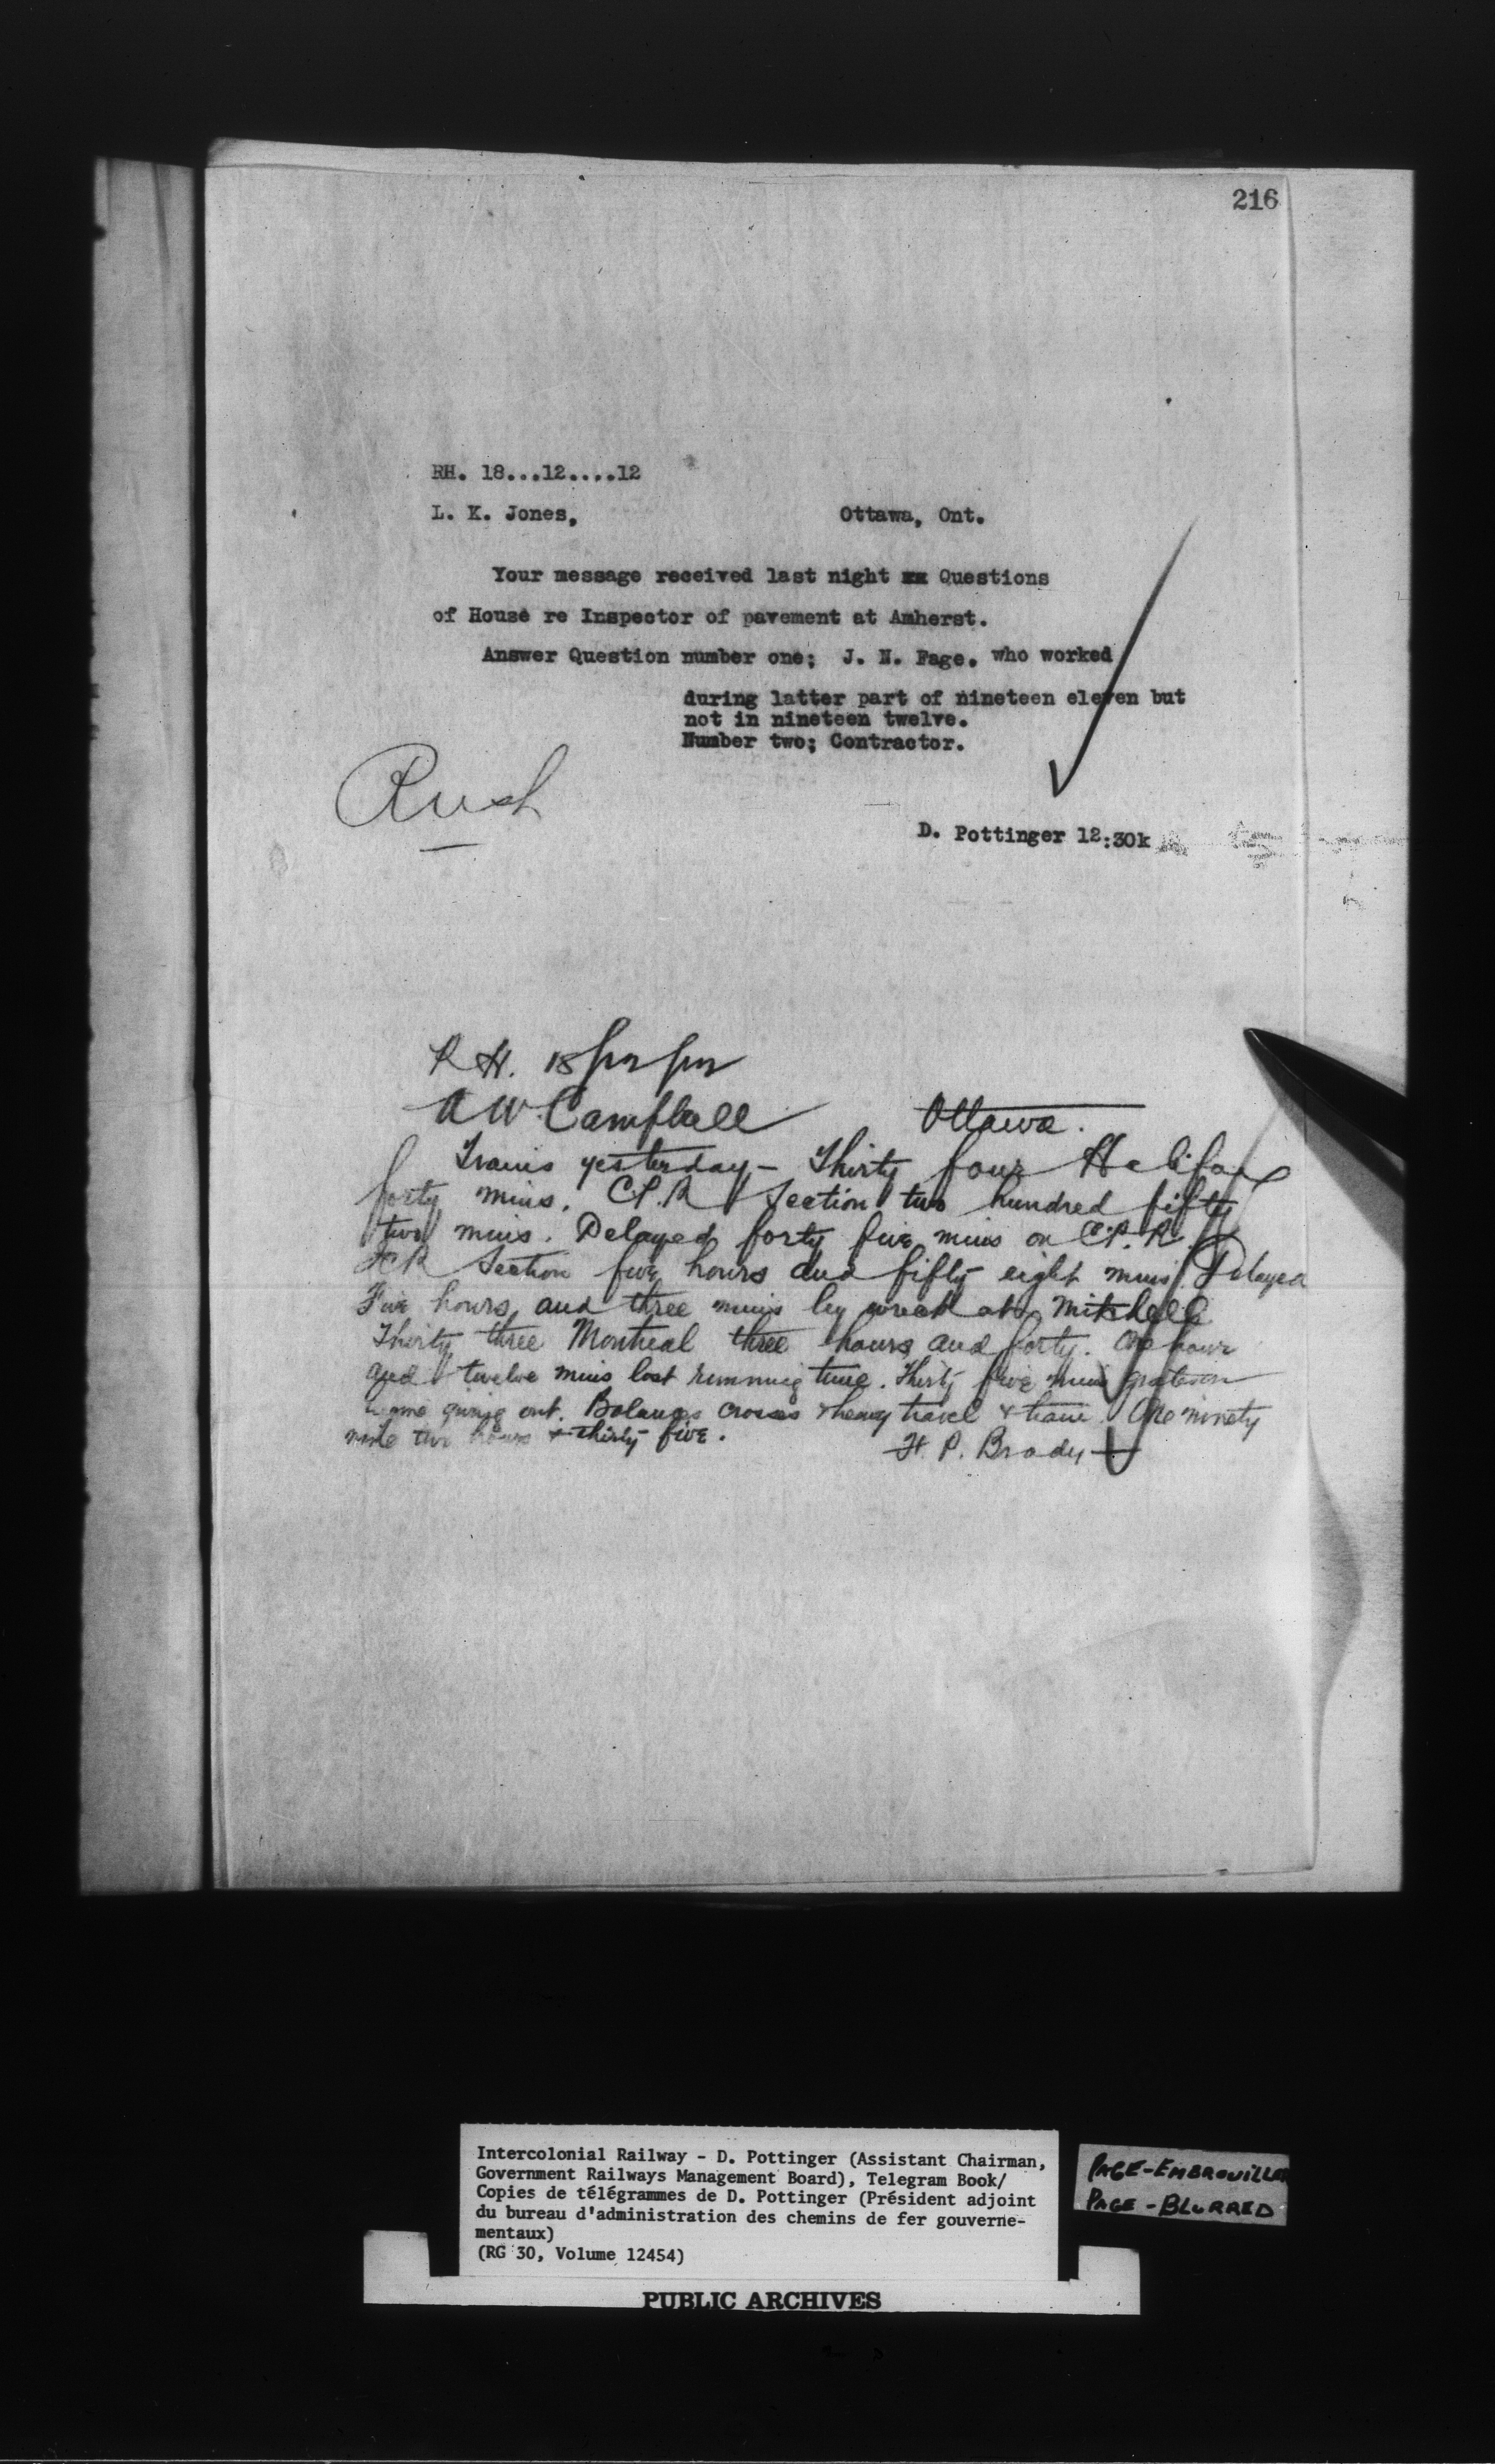 216
RH. 18...12....12
L. K. Jones, Ottawa, Ont.
Your message received last night xx Questions
of House re Inspector of pavement at Amherst.
Answer Question number one; J. N. Fage. who worked
during latter part of nineteen eleven but
not in nineteen twelve.
Number two; Contractor.
Rush
D. Pottinger 12:30k
R H. 18/12/12
A W. Campbell Ottawa.
Trains yesterday - Thirty four Halifax
forty mins. C.P.R Section two hundred fifty
two mins. Delayed forty five mins on C.P.R.
ICR Section five hours and fifty eight mins. Delayed
Five hours, and three mins by wreck at Mitchell
Thirty three Montreal three hours and forty. One hour
and twelve mins lost running time. Thirty five mins
going out. Balance crosses & heavy travel & train. One ninety
nine two hours & thirty five.
F. P. Brady
Intercolonial Railway - D. Pottinger (Assistant Chairman,
Government Railways Management Board), Telegram Book/
Copies de télégrammes de D. Pottinger (Président adjoint
du bureau d'administration des chemins de fer gouverne-
mentaux)
(RG 30, Volume 12454)
PAGE-EMBROUILLER
PAGE-BLURRED
PUBLIC ARCHIVES